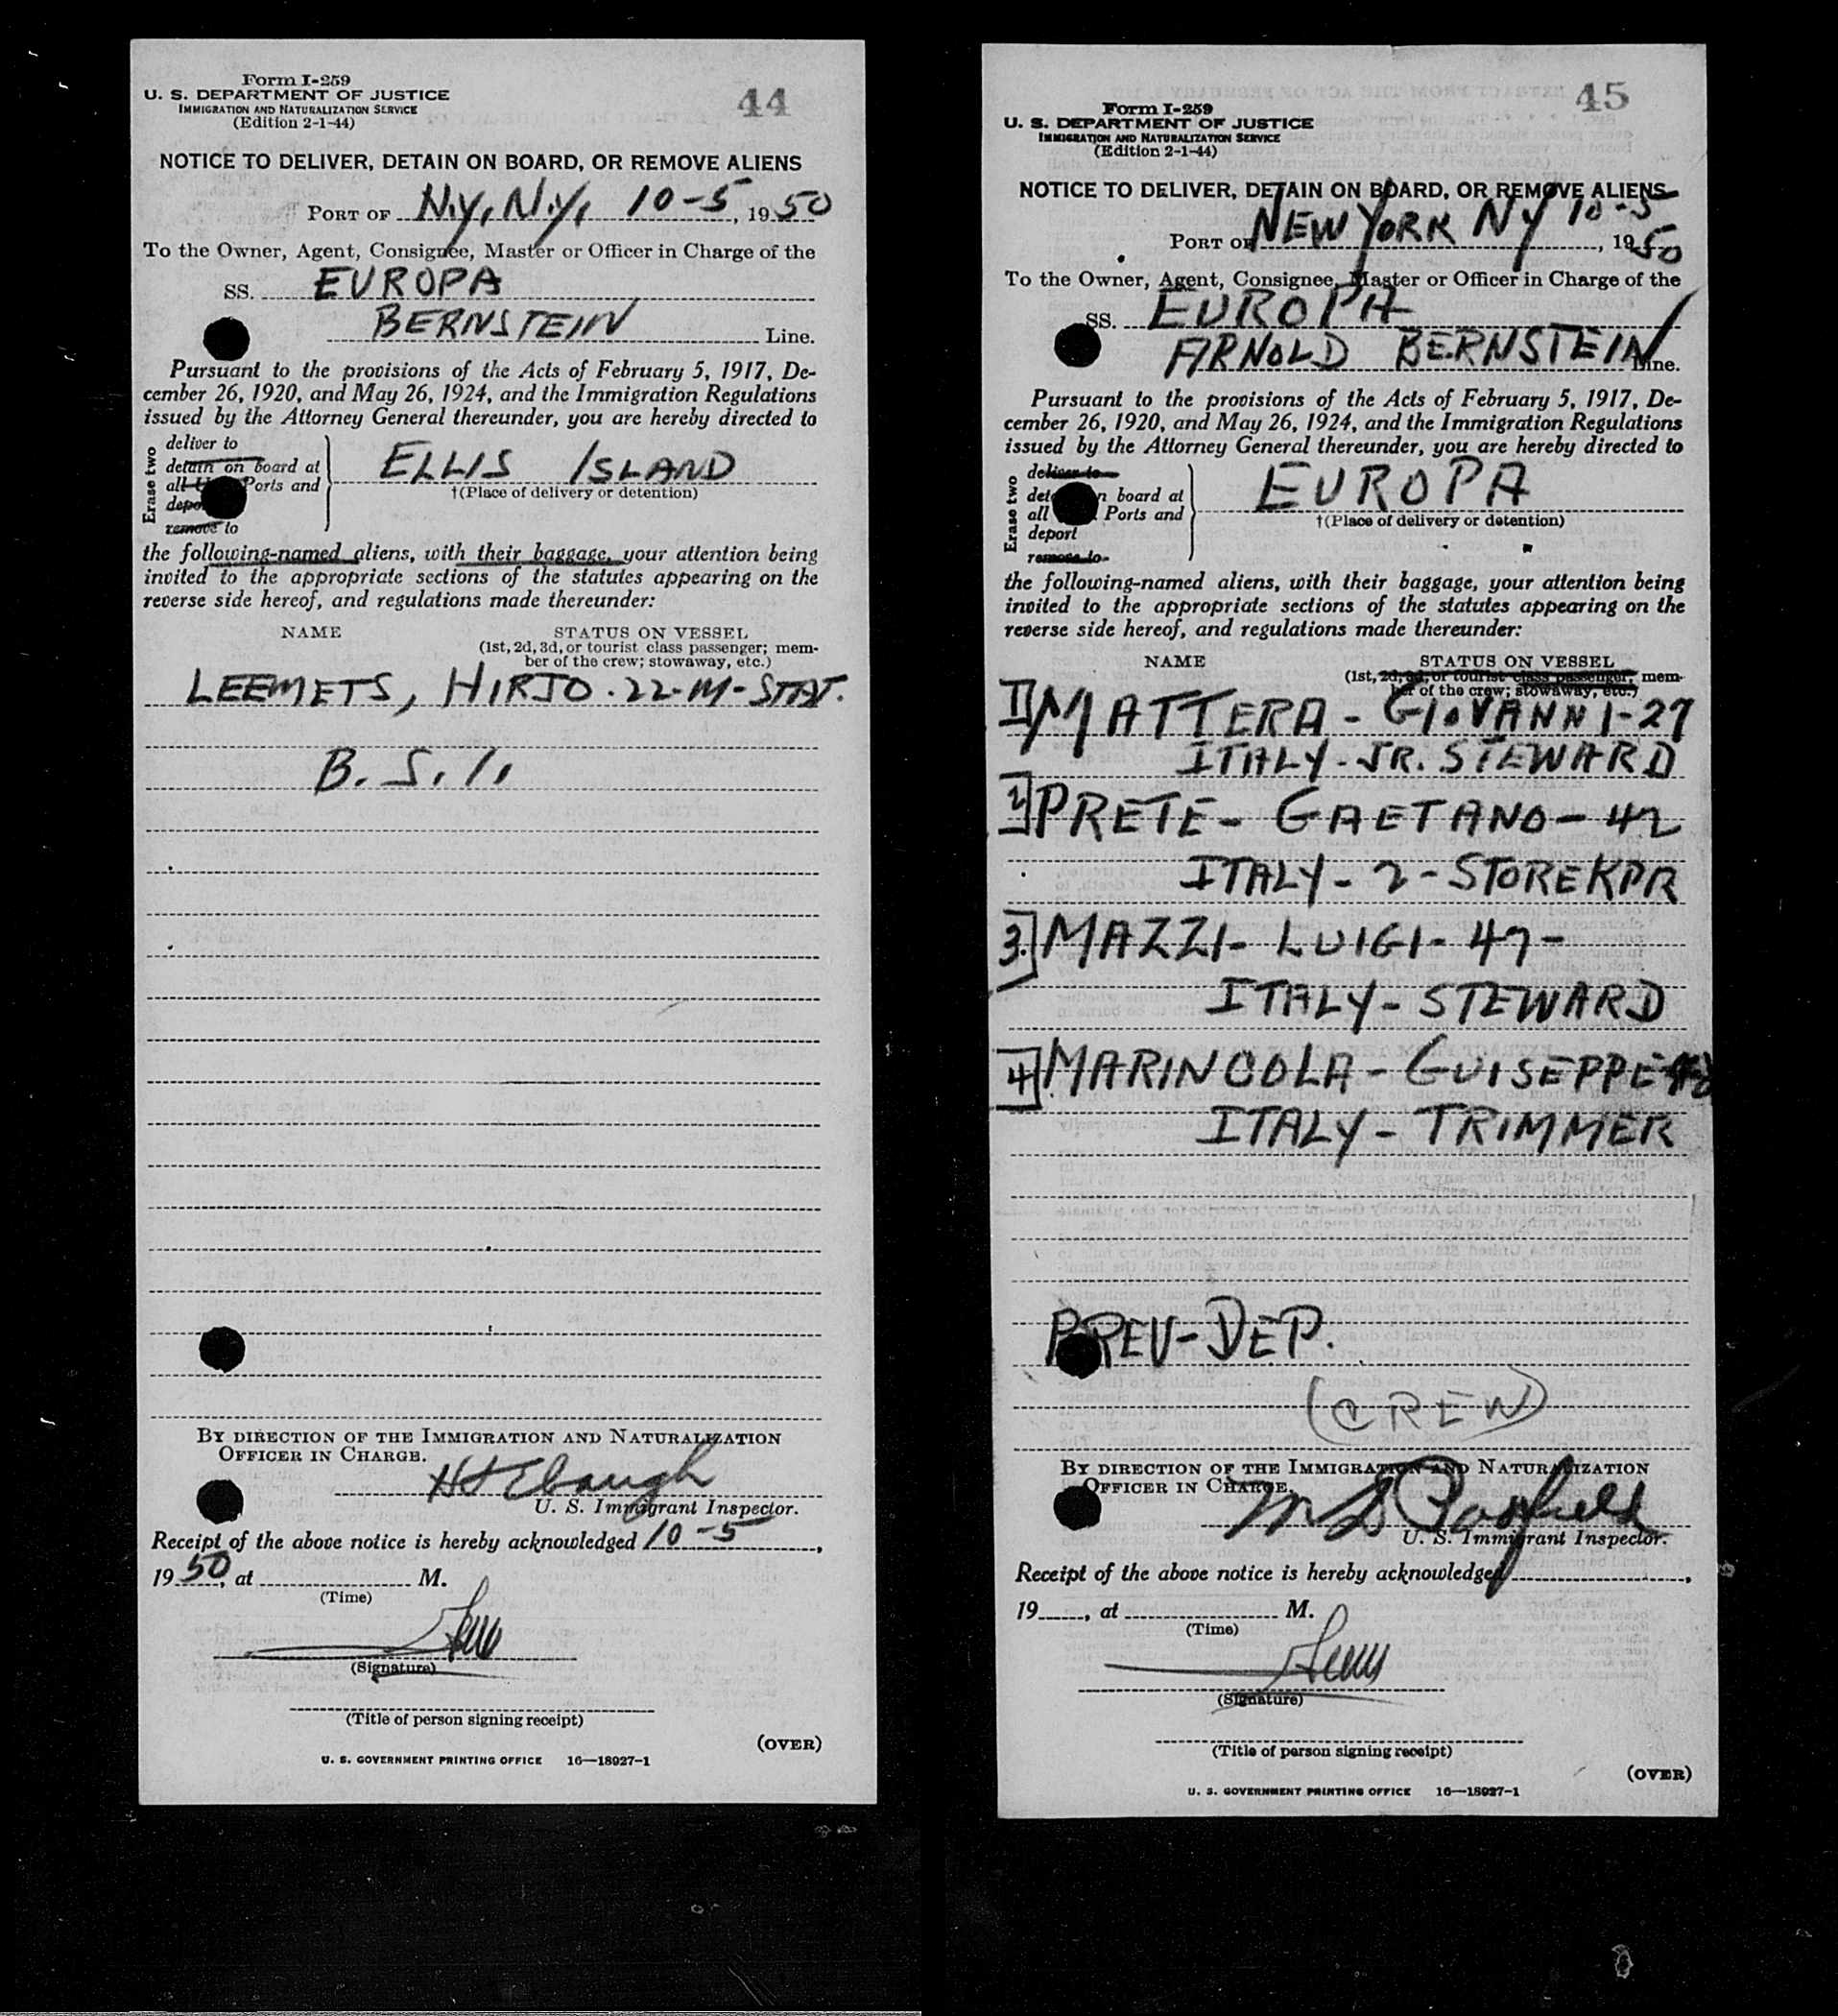 Form I-259
U. S. DEPARTMENT OF JUSTICE
IMMIGRATION AND NATURALIZATION SERVICE
(Edition 2-1-44)
44
NOTICE TO DELIVER, DETAIN ON BOARD, OR REMOVE ALIENS
PORT OF N.Y., N.Y. 10-5, 1950
To the Owner, Agent, Consignee, Master or Officer in Charge of the
SS. EUROPA
BERNSTEIN Line.
Pursuant to the provisions of the Acts of February 5, 1917, De-
cember 26, 1920, and May 26, 1924, and the Immigration Regulations
issued by the Attorney General thereunder, you are hereby directed to
Erase two
deliver to
detain on board at
all Ports and
remove to
ELLIS ISLAND
†(Place of delivery or detention)
the following-named aliens, with their baggage, your attention being
invited to the appropriate sections of the statutes appearing on the
reverse side hereof, and regulations made thereunder:
NAME STATUS ON VESSEL
(1st, 2d, 3d, or tourist class passenger; mem-
ber of the crew; stowaway, etc.)
LEEMETS, HIRJO. 22-M-STAT.
B. S. I.
BY DIRECTION OF THE IMMIGRATION AND NATURALIZATION
OFFICER IN CHARGE.
U. S. Immigrant Inspector.
Receipt of the above notice is hereby acknowledged 10-5,
1950, at M.
(Time)
(Signature)
(Title of person signing receipt)
(OVER)
U. S. GOVERNMENT PRINTING OFFICE 16—18927-1
Form I-259
U. S. DEPARTMENT OF JUSTICE
IMMIGRATION AND NATURALIZATION SERVICE
(Edition 2-1-44)
45
NOTICE TO DELIVER, DETAIN ON BOARD, OR REMOVE ALIENS
PORT OF NEW YORK NY 10-5, 1950
To the Owner, Agent, Consignee, Master or Officer in Charge of the
SS. EUROPA
ARNOLD BERNSTEIN Line.
Pursuant to the provisions of the Acts of February 5, 1917, De-
cember 26, 1920, and May 26, 1924, and the Immigration Regulations
issued by the Attorney General thereunder, you are hereby directed to
Erase two
deliver to
on board at
all Ports and
deport
remove to
EUROPA
†(Place of delivery or detention)
the following-named aliens, with their baggage, your attention being
invited to the appropriate sections of the statutes appearing on the
reverse side hereof, and regulations made thereunder:
NAME STATUS ON VESSEL
(1st, 2d, 3d, or tourist class passenger; mem-
ber of the crew; stowaway, etc.)
1 MATTERA - GIOVANNI - 27
ITALY - JR. STEWARD
2 PRETE - GAETANO - 42
ITALY - 2 - STOREKPR
3. MAZZI - LUIGI - 47 -
ITALY - STEWARD
4. MARINCOLA - GUISEPPE
ITALY - TRIMMER
PREV-DEP.
(CREW)
BY DIRECTION OF THE IMMIGRATION AND NATURALIZATION
OFFICER IN CHARGE.
U. S. Immigrant Inspector.
Receipt of the above notice is hereby acknowledged
19, at M.
(Time)
(Signature)
(Title of person signing receipt)
(OVER)
U. S. GOVERNMENT PRINTING OFFICE 16—18927-1